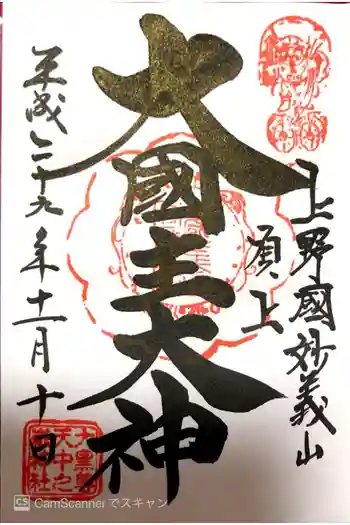 上野國妙義山
頂上
大國主大神
平成二十九年十一月十日
CS CamScanner でスキャン